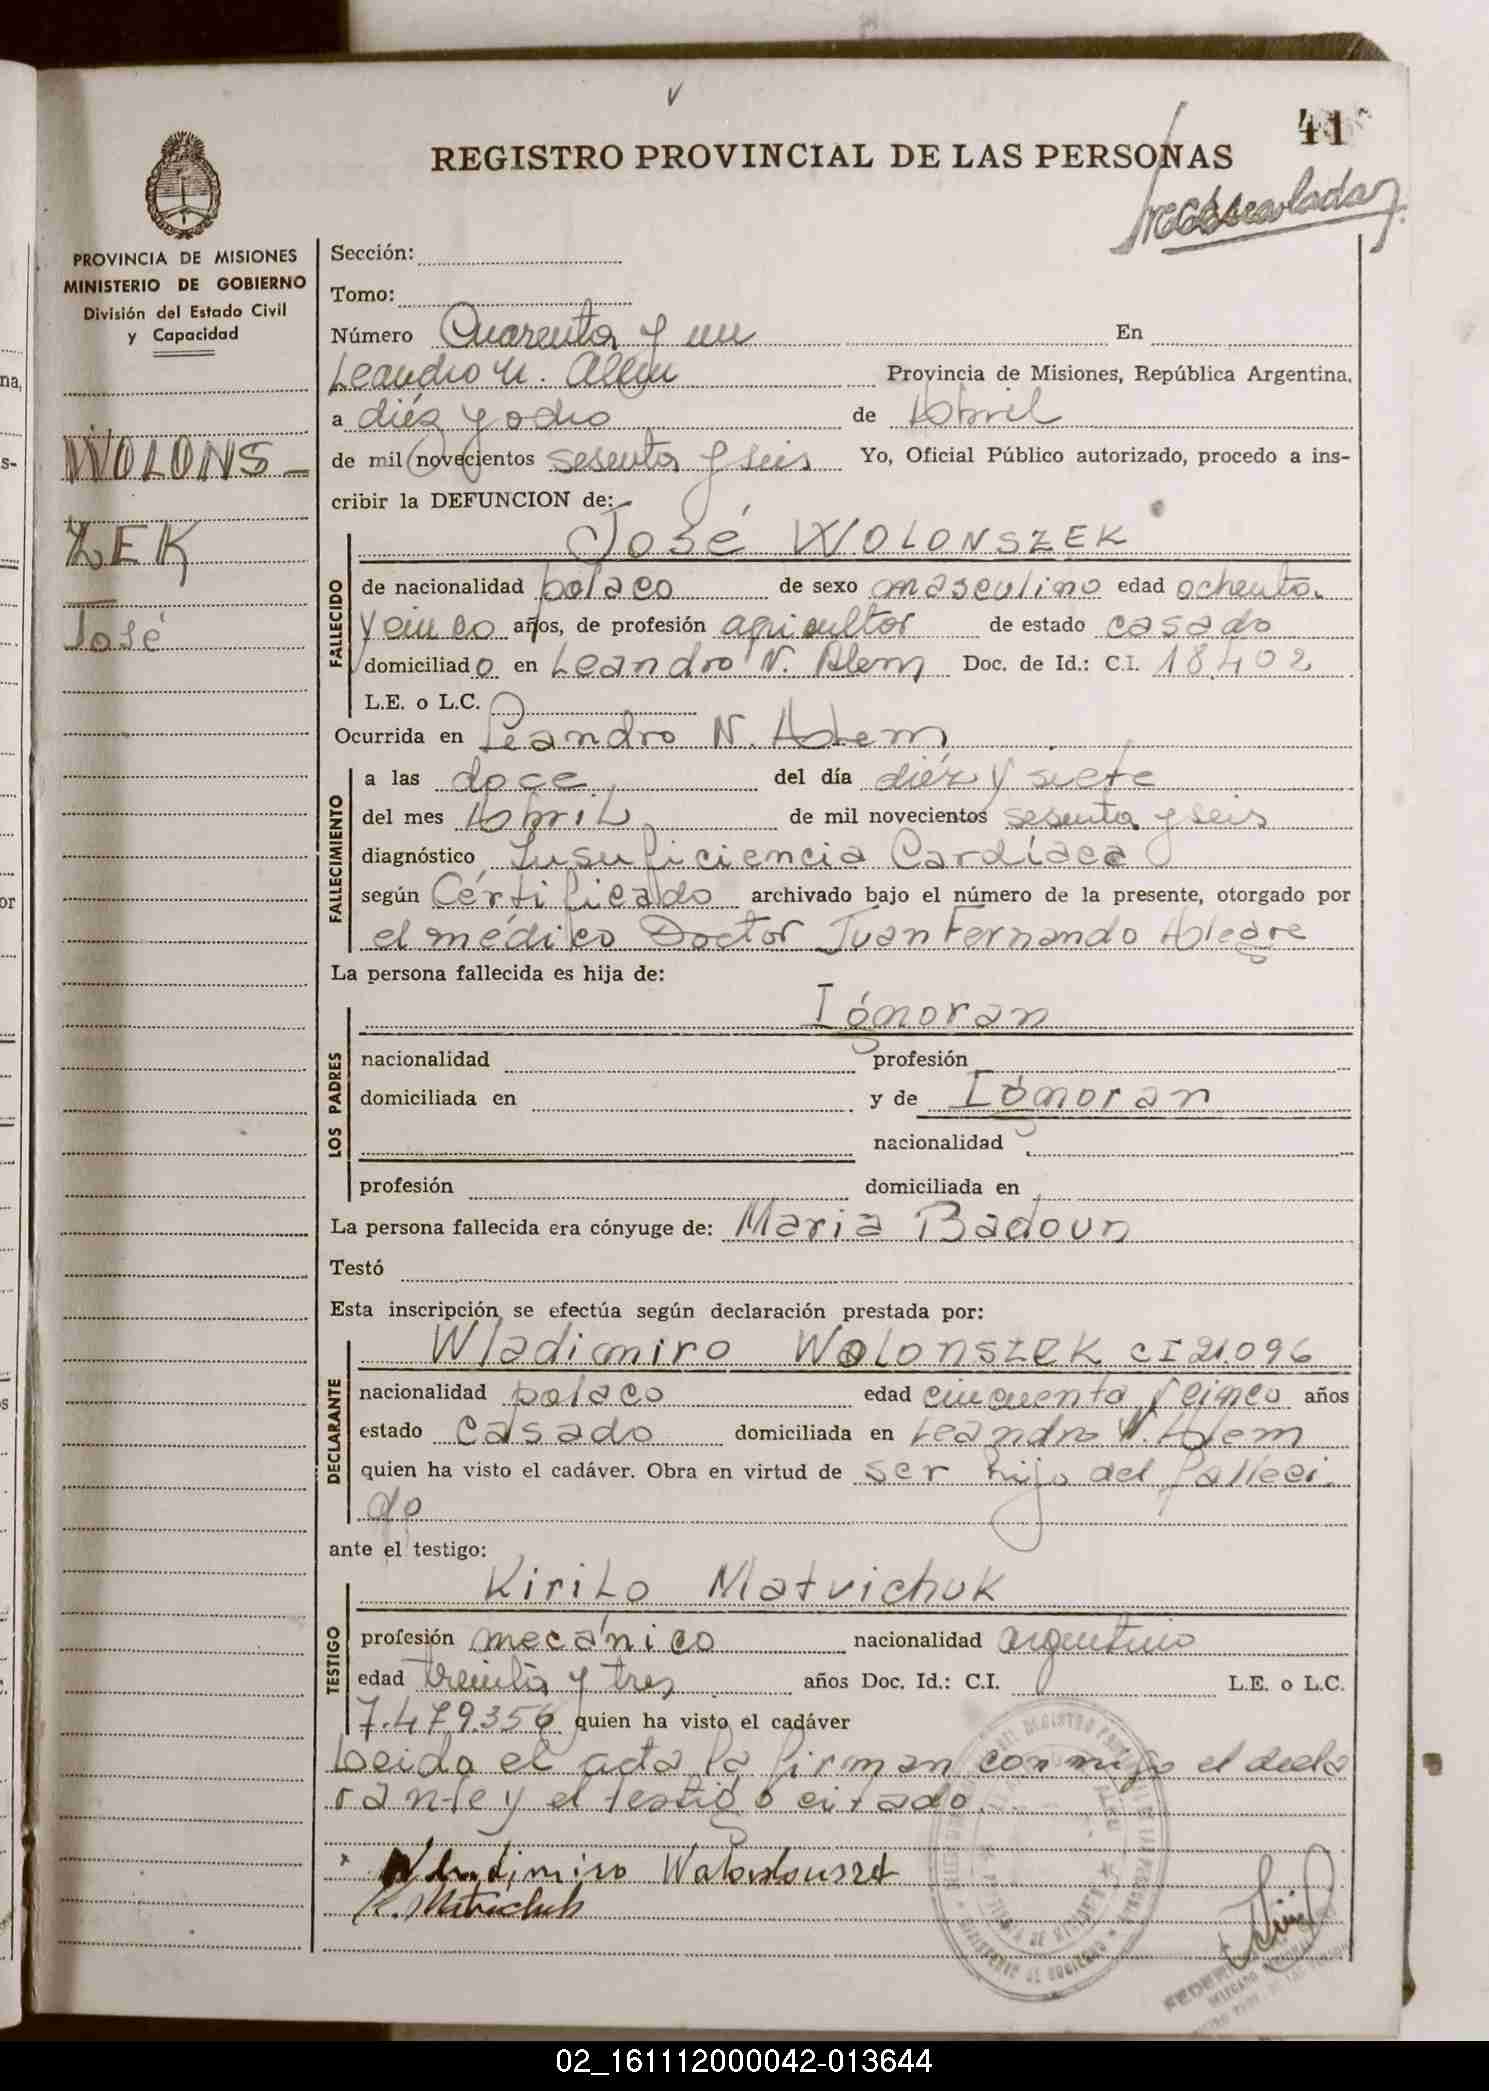 41
REGISTRO PROVINCIAL DE LAS PERSONAS
PROVINCIA DE MISIONES
MINISTERIO DE GOBIERNO
División del Estado Civil
y Capacidad
WOLONS-
ZEK
José
Sección:
Tomo:
Número Cuarenta y un En
Leandro N. Alem Provincia de Misiones, República Argentina,
a diéz y ocho de Abril
de mil novecientos sesenta y seis Yo, Oficial Público autorizado, procedo a ins-
cribir la DEFUNCION de:
José WOLONSZEK
FALLECIDO
de nacionalidad polaco de sexo masculino edad ochenta
y cinco años, de profesión agricultor de estado casado
domiciliado en Leandro N. Alem Doc. de Id.: C.I. 18.402
L.E. o L.C.
Ocurrida en Leandro N. Alem
FALLECIMIENTO
a las doce del día diéz y siete
del mes Abril de mil novecientos sesenta y seis
diagnóstico Insuficiencia Cardíaca
según Certificado archivado bajo el número de la presente, otorgado por
el médico Doctor Juan Fernando Alegre
La persona fallecida es hija de:
LOS PADRES
Ignoran
nacionalidad profesión
domiciliada en y de Ignoran
nacionalidad
profesión domiciliada en
La persona fallecida era cónyuge de: Maria Badoun
Testó
Esta inscripción se efectúa según declaración prestada por:
DECLARANTE
Wladimiro Wolonszek CI 21.096
nacionalidad polaco edad cincuenta y cinco años
estado casado domiciliada en Leandro N. Alem
quien ha visto el cadáver. Obra en virtud de ser hijo del falleci-
do
ante el testigo:
TESTIGO
Kirilo Matvichuk
profesión mecánico nacionalidad argentino
edad treinta y tres años Doc. Id.: C.I. L.E. o L.C.
7.479.356 quien ha visto el cadáver
Leida el acta la firman conmigo el decla
rante y el testigo citado.
Wladimiro
K. Matvichuk
02_161112000042-013644